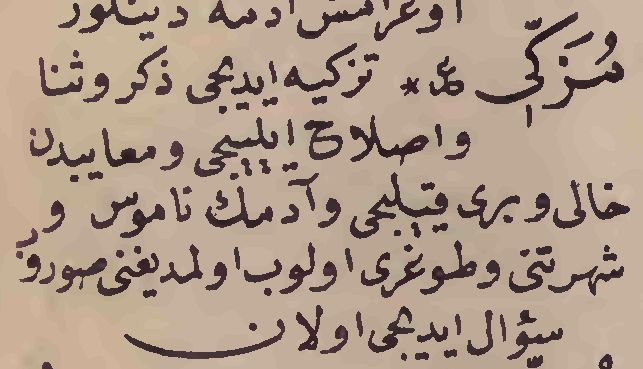 اوغرامش آدمه دینلور
مُزَكّی ﷽ * تزكیه ایدیجی ذكر وثنا
واصلاح ایلییجی ومعایبدن
خالی وبری قیلیجی وآدمك ناموس و
شهرتنی وطوغری اولوب اولمدیغنی صوروب
سؤال ایدیجی اولان